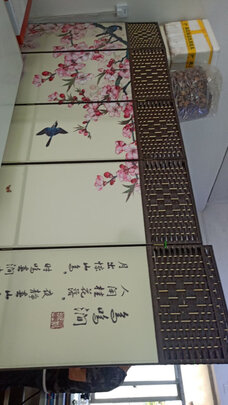 鸟鸣涧
人闲桂花落、夜静春山
月出惊山鸟、时鸣春涧